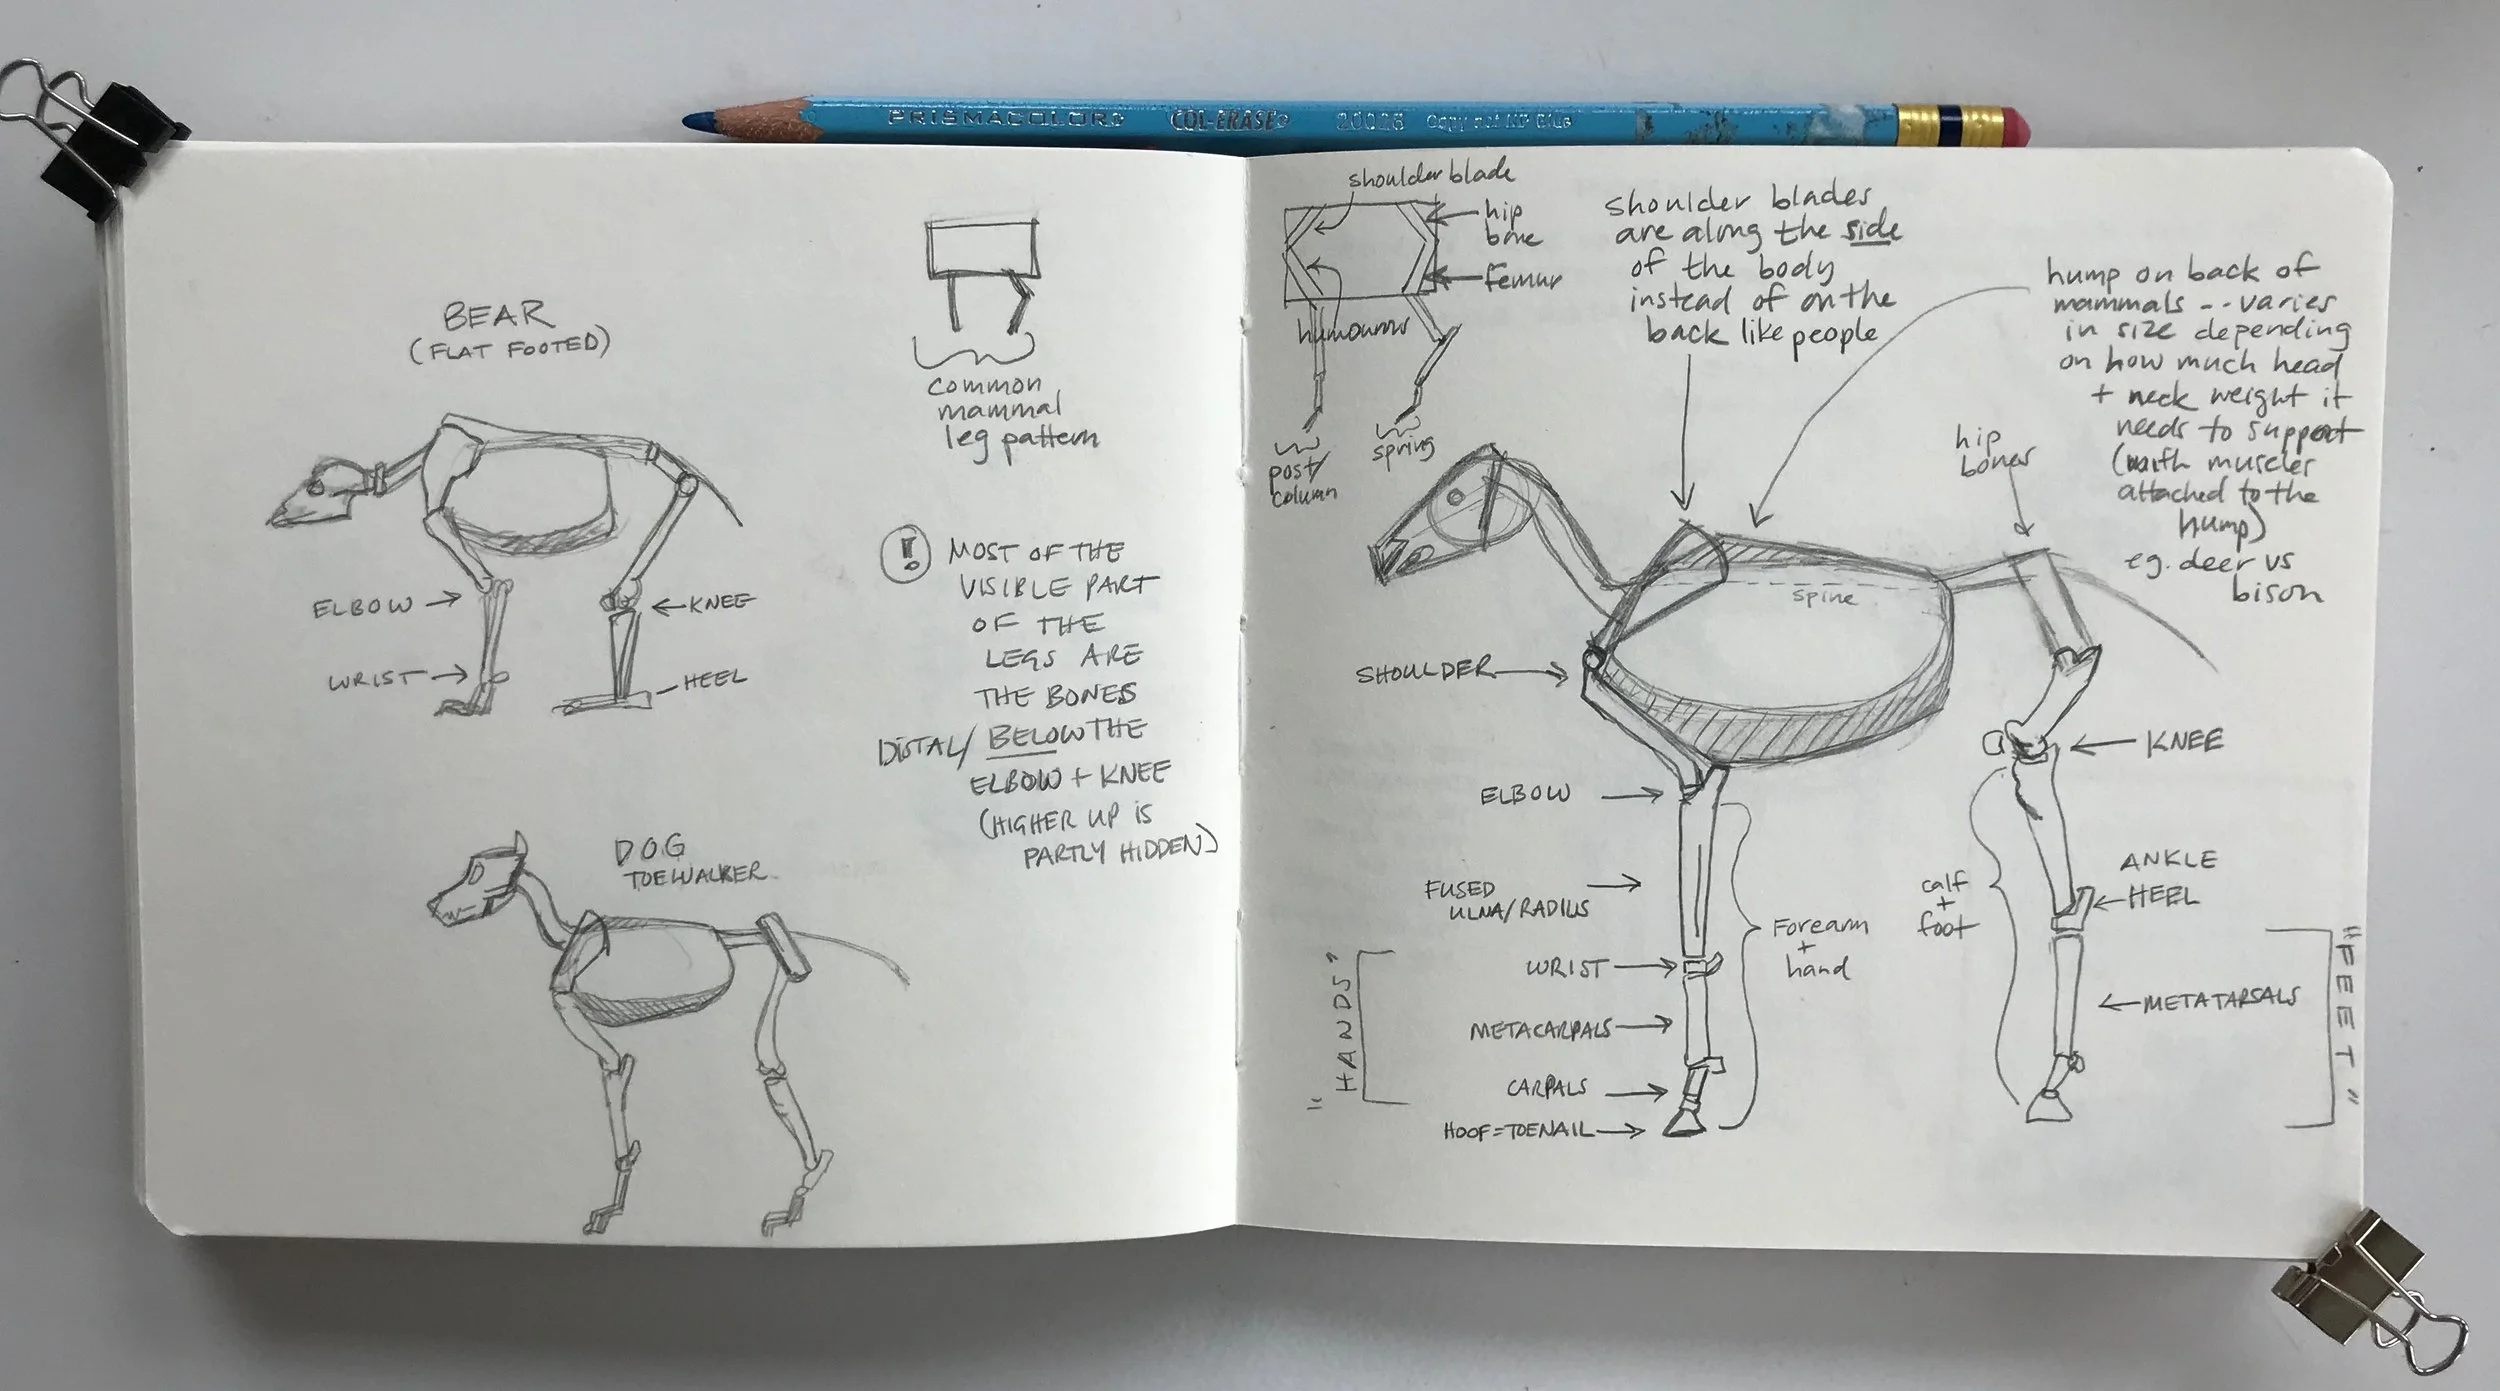 PRISMACOLOR® COL-ERASE® 20028 Copy not NP Blue
BEAR
(FLAT FOOTED)
ELBOW
KNEE
WRIST
HEEL
common
mammal
leg pattern
!
MOST OF THE
VISIBLE PART
OF THE
LEGS ARE
THE BONES
DISTAL/ BELOW THE
ELBOW + KNEE
(HIGHER UP IS
PARTLY HIDDEN)
DOG
TOEWALKER
shoulder blade
hip
bone
Femur
humourous
post/
column
spring
shoulder blades
are along the side
of the body
instead of on the
back like people
hump on back of
mammals -- varies
in size depending
on how much head
+ neck weight it
needs to support
(with muscles
attached to the
hump)
eg. deer vs
bison
hip
bones
spine
SHOULDER
KNEE
ELBOW
FUSED
ULNA/RADIUS
Forearm
+
hand
calf
+
foot
ANKLE
HEEL
WRIST
METACARPALS
METATARSALS
CARPALS
HOOF=TOENAIL
"HANDS"
"FEET"